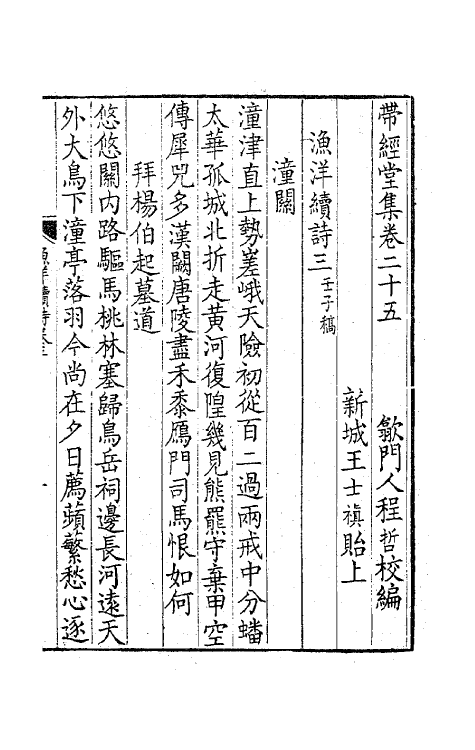 帶經堂集卷二十五
歙門人程哲校編
新城王士禛貽上
漁洋續詩三壬子稿
潼關
潼津直上勢嵳峨天險初從百二過兩戒中分蟠
太華孤城北折走黃河復隍幾見熊羆守棄甲空
傳犀兕多漢闕唐陵盡禾黍鴈門司馬恨如何
拜楊伯起墓道
悠悠關内路驅馬桃林塞歸鳥岳祠邊長河遠天
外大鳥下潼亭落羽今尚在夕日薦蘋蘩愁心逐